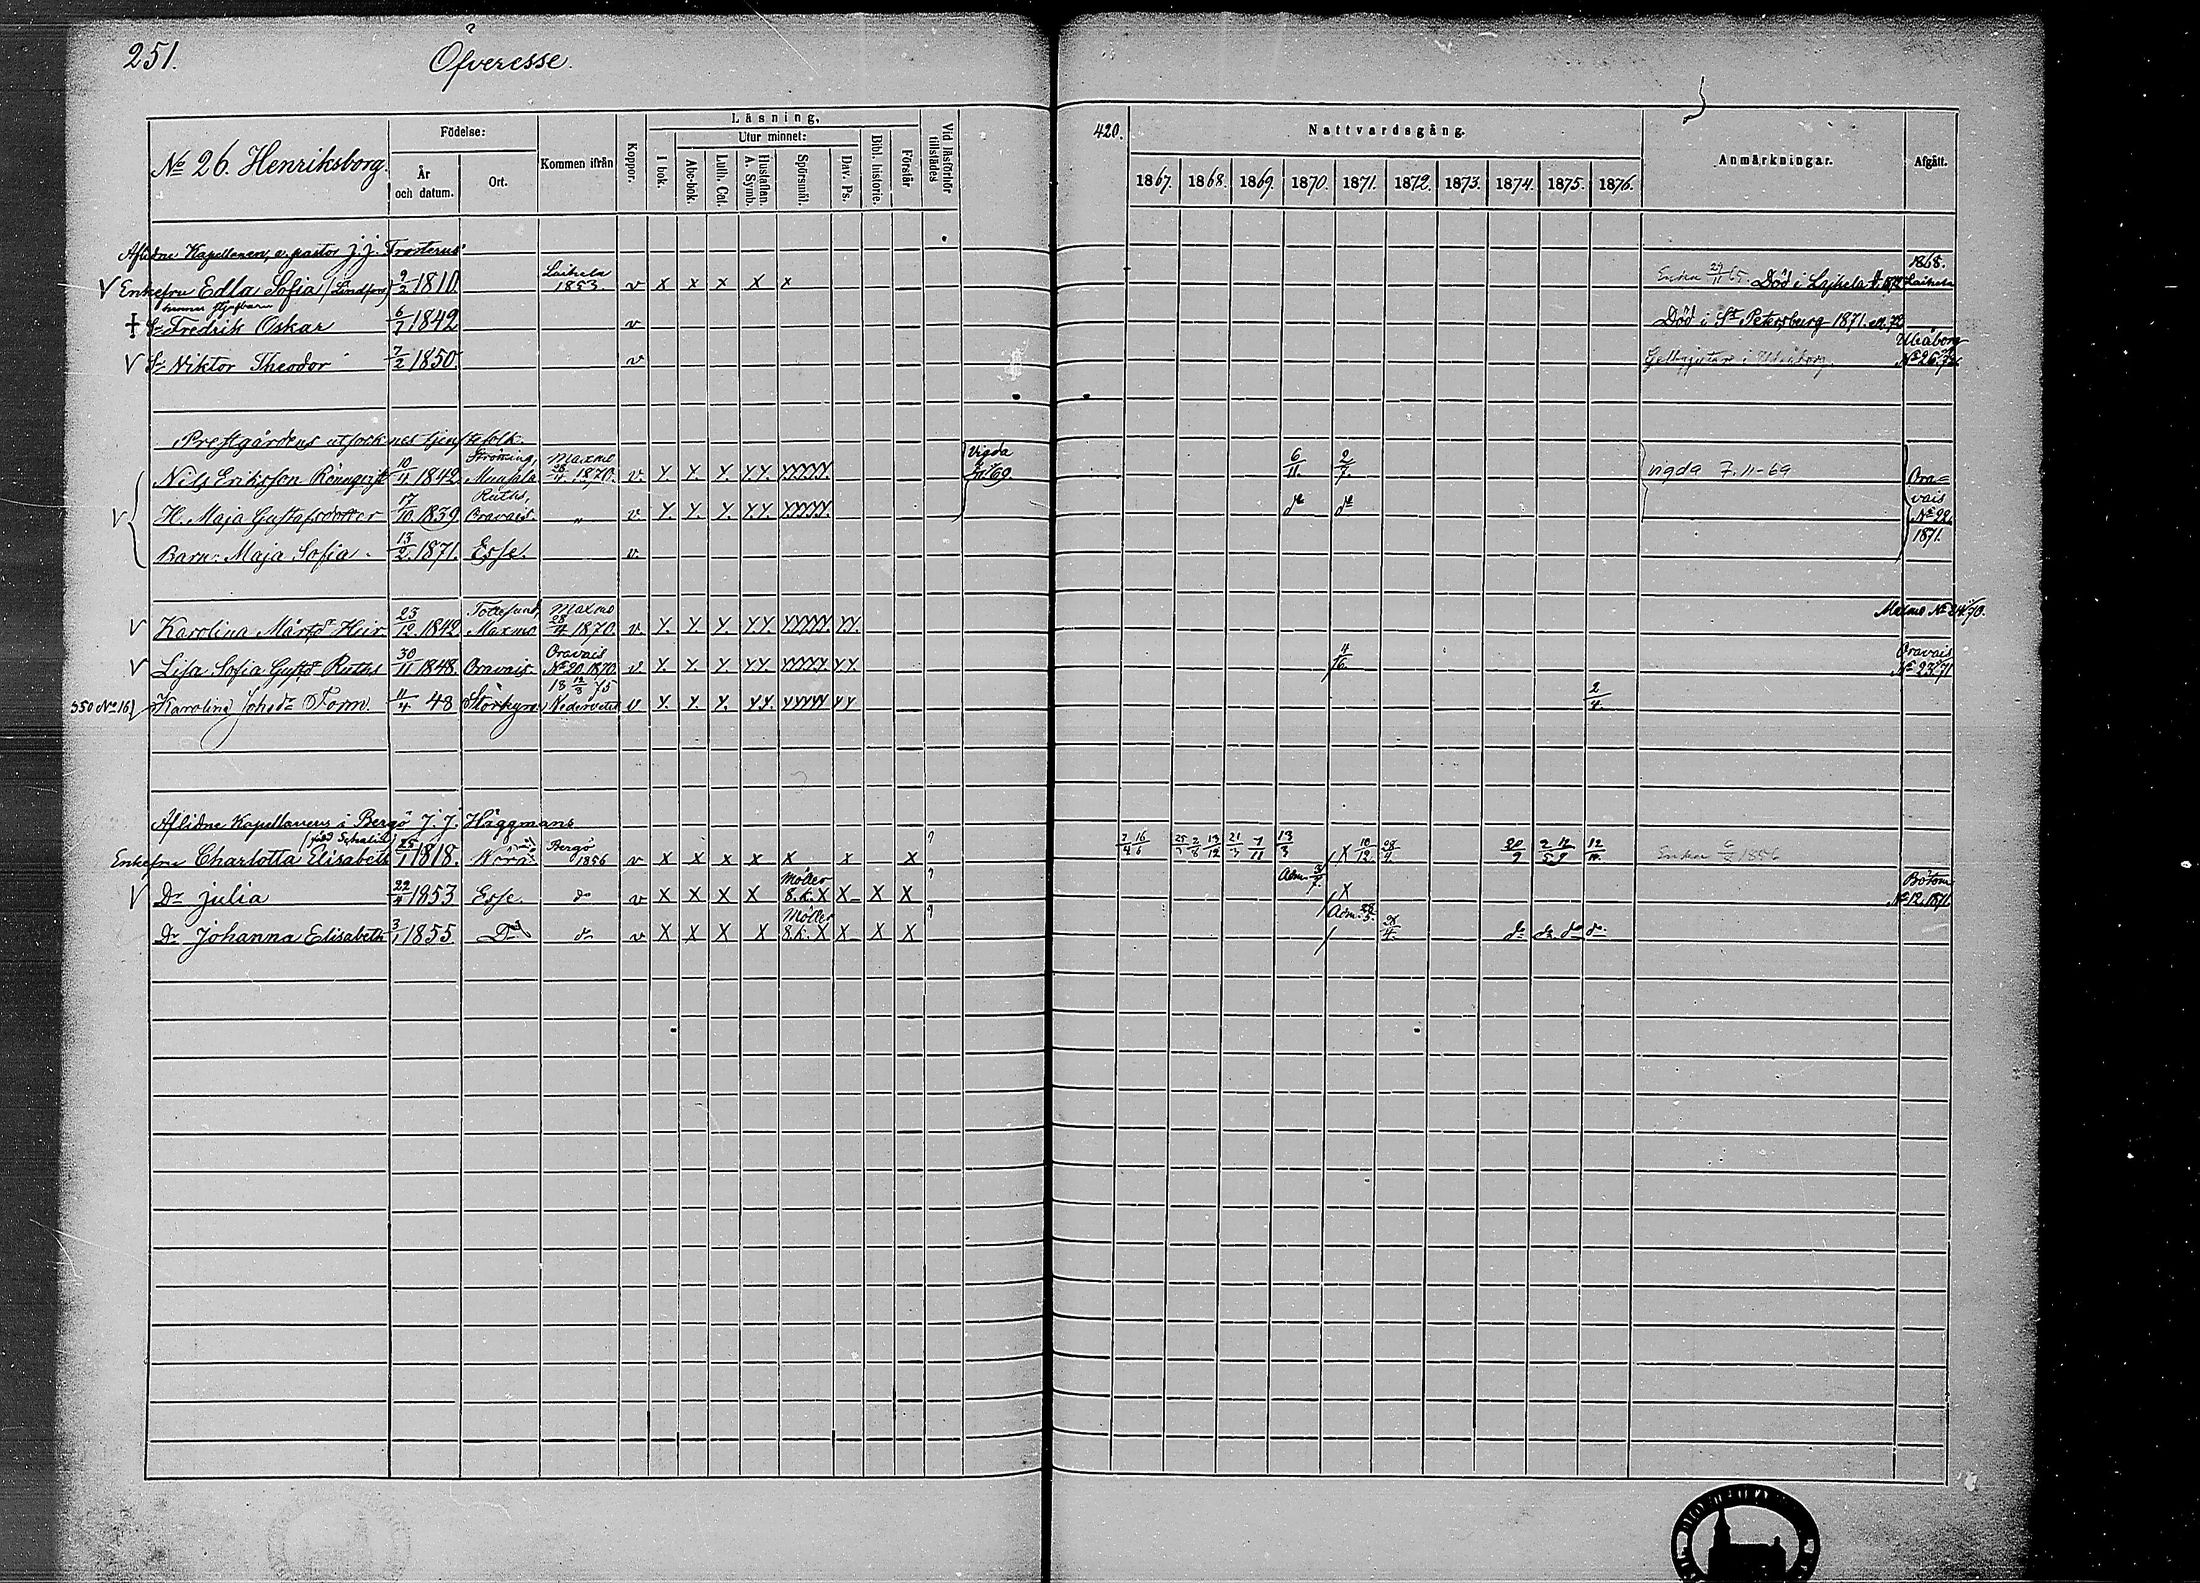 251.
Öfveresse.
No 26. Henriksborg.
Födelse:
År och datum.
Ort.
Kommen ifrån
Koppor.
Läsning,
I bok.
Utur minnet:
Abc-bok.
Luth. Cat.
Hustaflan. A. Symb.
Spörsmål.
Dav. Ps.
Bibl. historie.
Förstår
Vid läsförhör tillstädes
420.
Nattvardsgång.
1867. 1868. 1869. 1870. 1871. 1872. 1873. 1874. 1875. 1876.
Anmärkningar.
Afgått.
Aflidne Kapellanen, v. pastor J. J. Frosterus'
V Enkefru Edla Sofia (Lindfors) 9/2 1810 Laihela 1853. v x x x x x Enka 29/11 65. Död i Laihela 1868. Laihela
hennes styfbarn
+ Sr Fredrik Oskar 6/7 1842 v Död i St Petersburg 1871.
V Sr Viktor Theodor 7/2 1850. v i Uleåborg. Uleåborg No 26
Prestgårdens utsocknes tjenstefolk.
Nils Eriksson Rönnqvist 10/4 1842. Munsala Maxmo 28/4 1870. v. Y. Y. Y. YY. YYYYY. Vigda 7/11 69. 6/11 2/7. vigda 7.11-69 Oravais No 22. 1871.
V H. Maja Gustafsdotter 17/10 1839 Ruths, Oravais. " v. Y. Y. Y. YY. YYYYY. do do
Barn: Maja Sofia. 13/2 1871. Esse. v.
V Karolina Mårtsdr Heir 23/12 1842 Tottesund, Maxmo Maxmo 28/4 1870 v. Y. Y. Y. YY. YYYYY YY. Maxmo No 24 70.
V Lisa Sofia Gustdr Ruths 30/11 1848. Oravais. Oravais No 20. 1870. v. Y. Y. Y. YY YYYYY YY 4/6. Oravais No 23. 71
350 No 16 Karolina Johsdr Form. 11/4 48 Storkyro 18 12/3 75 Nedervetil v Y. Y. Y. YY. YYYYY YY 2/4.
Aflidne Kapellanens i Bergö J. J. Häggmans
Enkefru Charlotta Elisabeth 25/1 1818. Bergö 1856 v x x x x x x x 7/4 16/6 25/3 2/8 13/12 21/3 7/11 13/3 X 10/12. 28/4. 20/9 2/5 12/9 12/11. Enka 1856
V Dr Julia 22/4 1853 Esse. do v X X X X Möller S.k. X X X X Adm. 3/7. X Bötom No 12. 1871.
Dr Johanna Elisabeth 3/1 1855. Do do v X X X X Möller S.k. X X X X Adm. 28/5. 28/4. do do do do